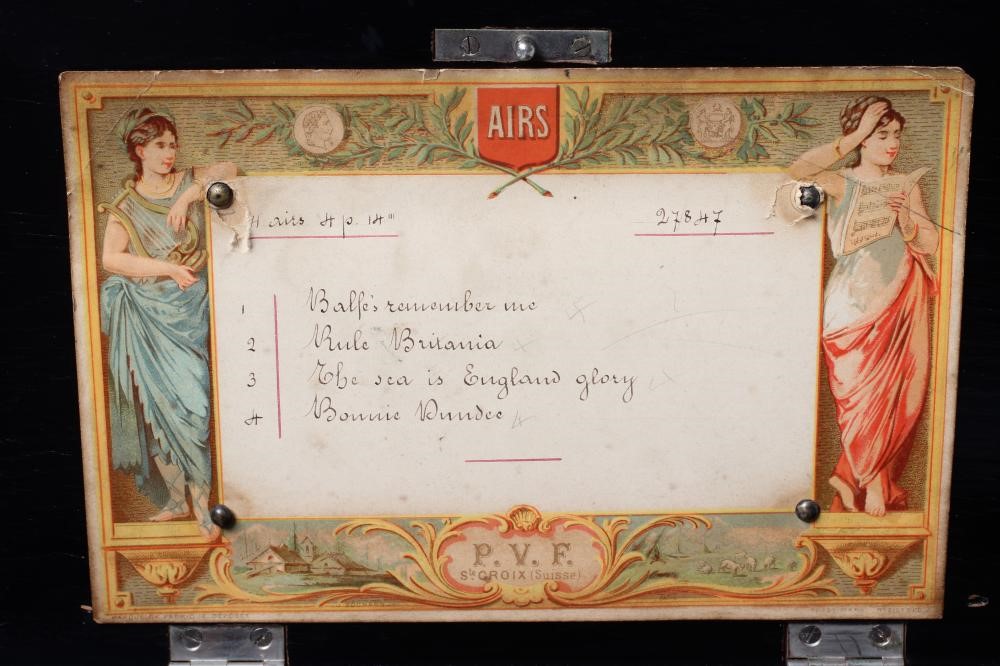 AIRS
4 airs 4 p. 14'''
27847
1 Balfe's remember me
2 Rule Britania
3 The sea is England glory
4 Bonnie Dundee
P. V. F.
Ste CROIX (Suisse)